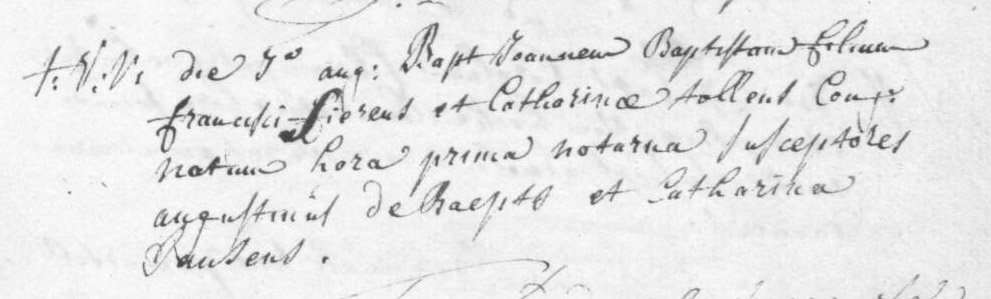 †: V: V: die 7ª aug: Bapt Joannem Baptistam filium
francisci fierens et Catharinæ tollens Conj:
natum hora prima noturna susceptores
augustinus de Raeyts et Catharina
Jansens.